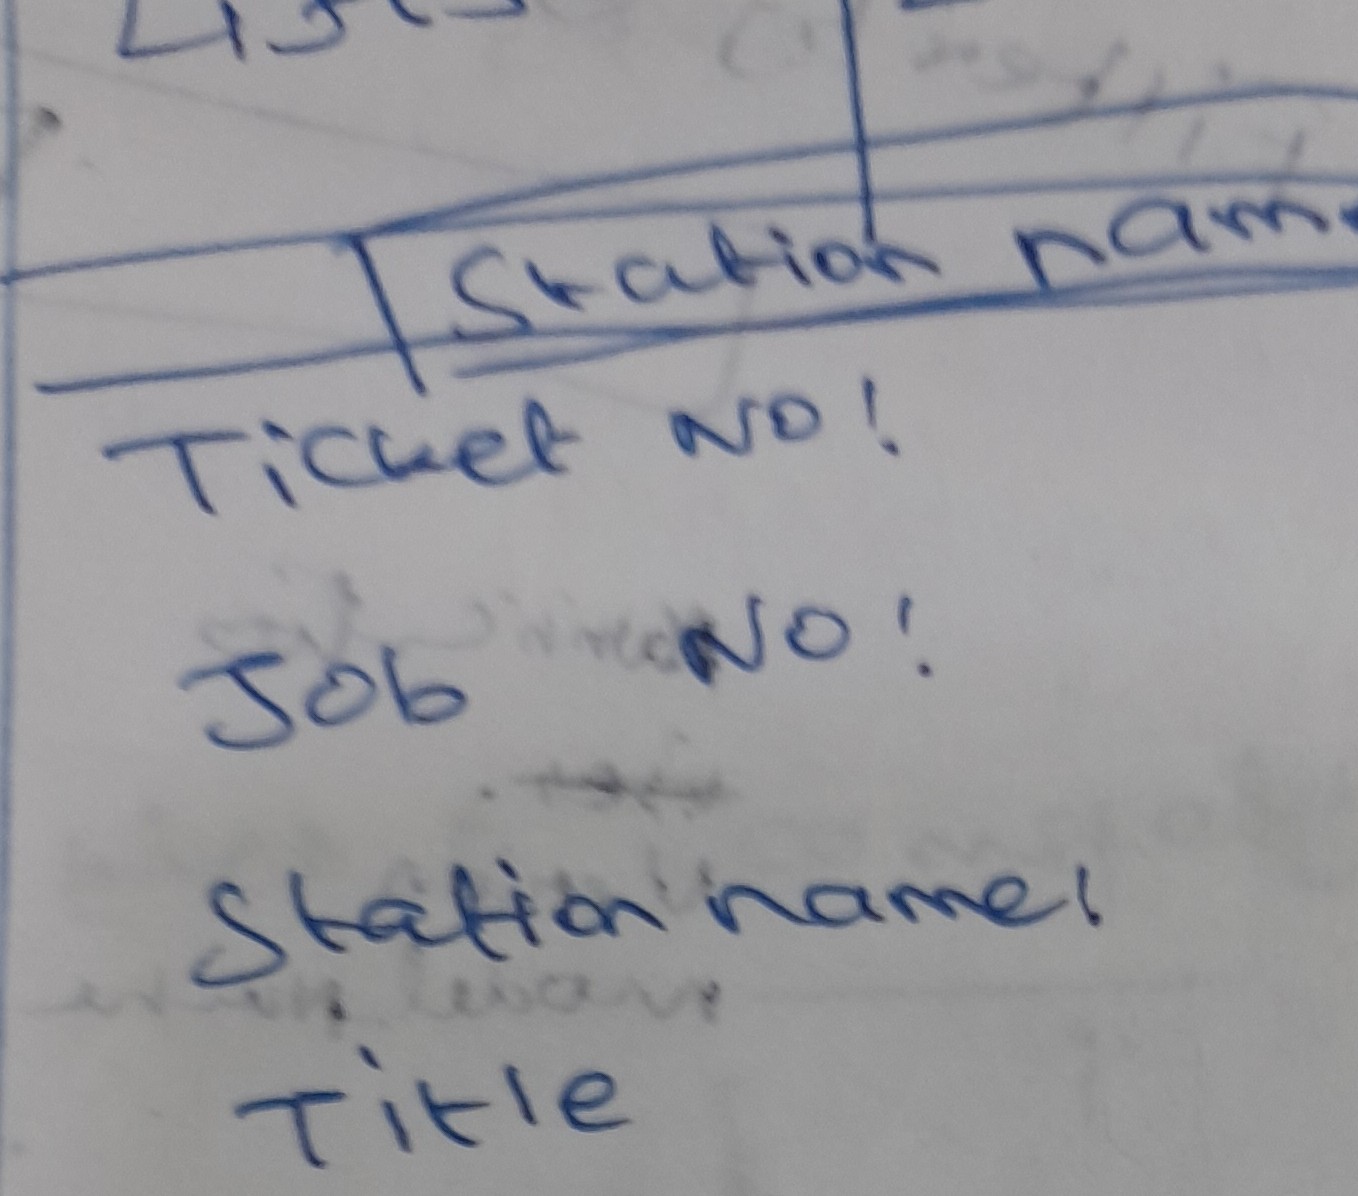 Lists
Station name
Ticket NO!
Job NO!
Station name!
Title